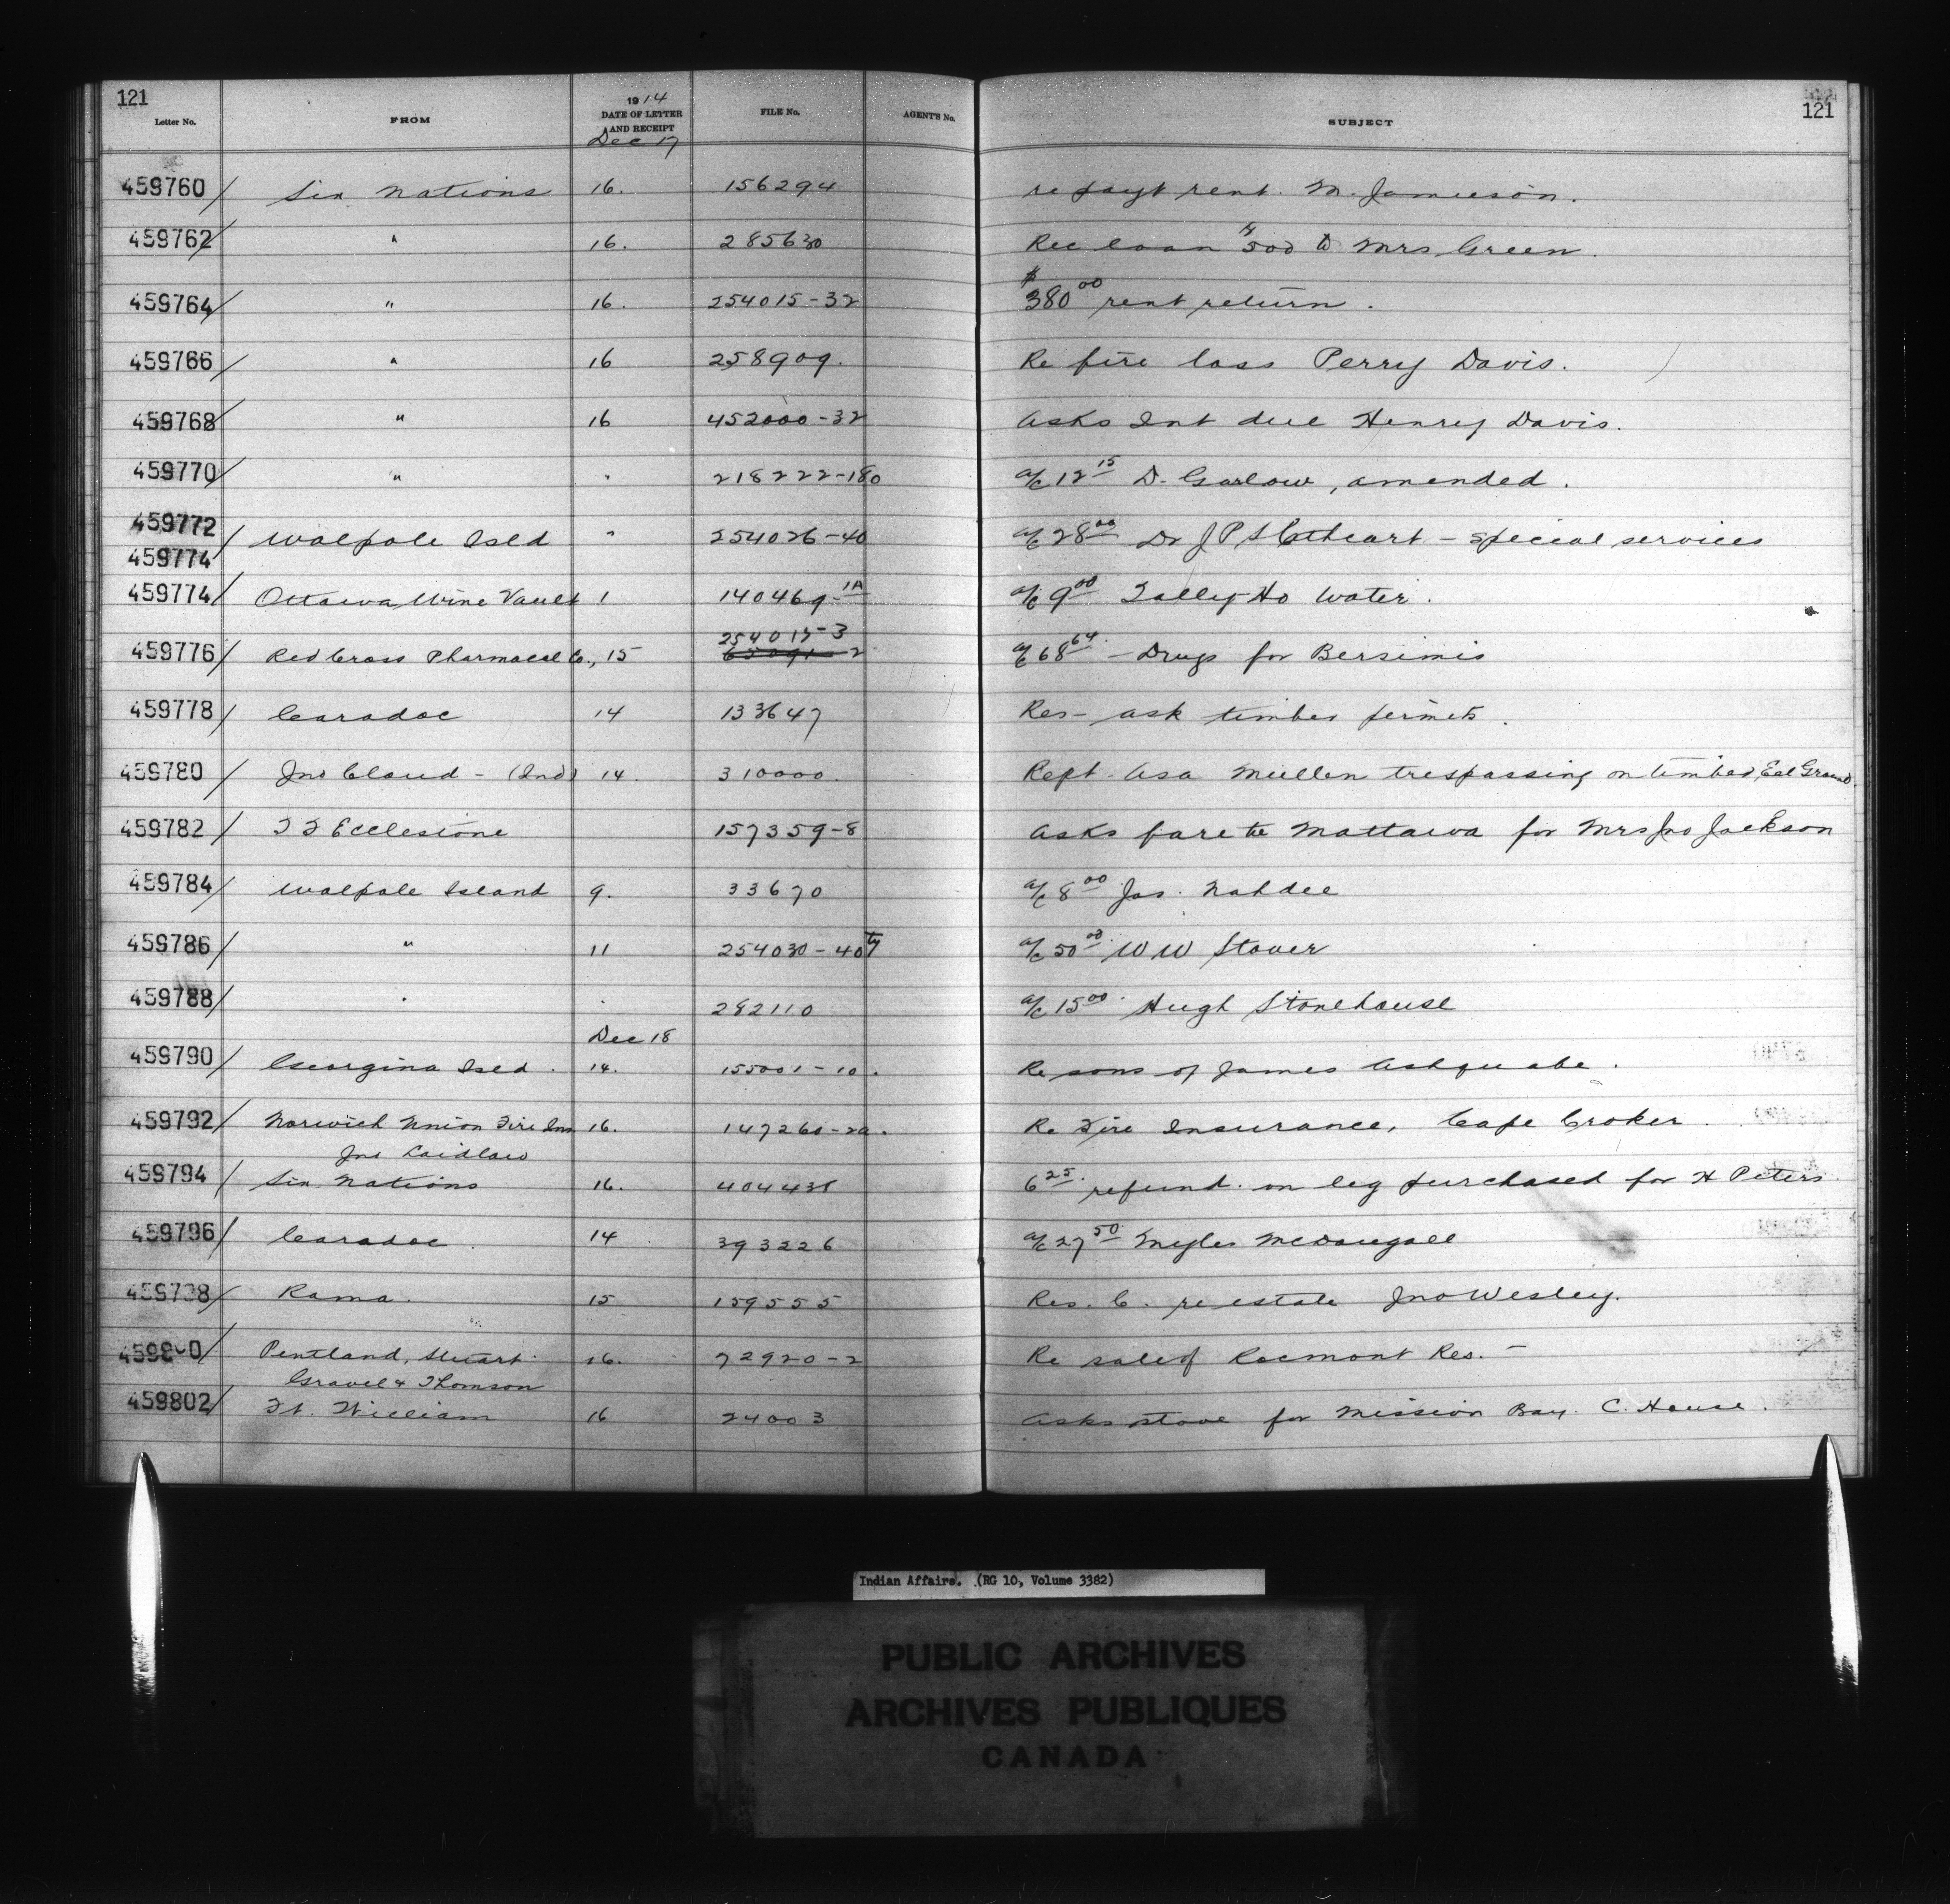 121
121
Letter No. FROM 1914 DATE OF LETTER AND RECEIPT FILE No. AGENT'S No. SUBJECT
Dec 17
459760 / Six Nations 16. 156294 re payt rent. M. Jamieson.
459762 / " 16. 285630 Rec loan $500 to Mrs Green.
459764 / " 16. 254015-32 $380 00 rent return.
459766 / " 16 258909. Re fire loss Perry Davis.
459768 / " 16 452000-32 Asks Int due Henry Davis.
459770 / " " 218222-180 a/c 12 15 D. Garlow, amended.
459772 / Walpole Isld " 254026-40 a/c 28 00 Dr J P S Cathcart - special services
459774
459774 / Ottawa Wine Vault 1 140469-1A a/c 9 00 Tally-Ho Water.
459776 / Red Cross Pharmacal Co., 15 254015-3 a/c 68 64 - Drugs for Bersimis
459778 / Caradoc 14 133647 Res- ask timber permits.
459780 / Jno Cloud - (Ind) 14. 310000. Rept. Asa Mullen trespassing on timber, Eel Ground.
459782 / T F Ecclestone 157359-8 Asks fare to Mattawa for Mrs Jno Jackson
459784 / Walpole Island 9. 33670 a/c 8 00 Jas. Nahdee
459786 / " 11 254030-40 a/c 50 00 W W Stover
459788 / " " 282110 a/c 15 00 Hugh Stonehouse
Dec 18
459790 / Georgina Isld. 14. 155001-10. Re sons of James Ashquabe.
459792 / Norwich Union Fire Ins 16. 147260-2a. Re Fire Insurance, Cape Croker.
Jno Laidlaw
459794 / Six Nations 16. 404438 6 25 refund. on leg purchased for H Peters.
459796 / Caradoc 14 393226 a/c 27 50 Myles McDougall
459798 / Rama. 15 159555 Res. C. re estate Jno Wesley.
459800 / Pentland, Stuart 16. 72920-2 Re sale of Rocmont Res. -
Gravel & Thomson
459802 / Ft. William 16 24003 Asks stove for Mission Bay C. House.
Indian Affairs. (RG 10, Volume 3382)
PUBLIC ARCHIVES
ARCHIVES PUBLIQUES
CANADA